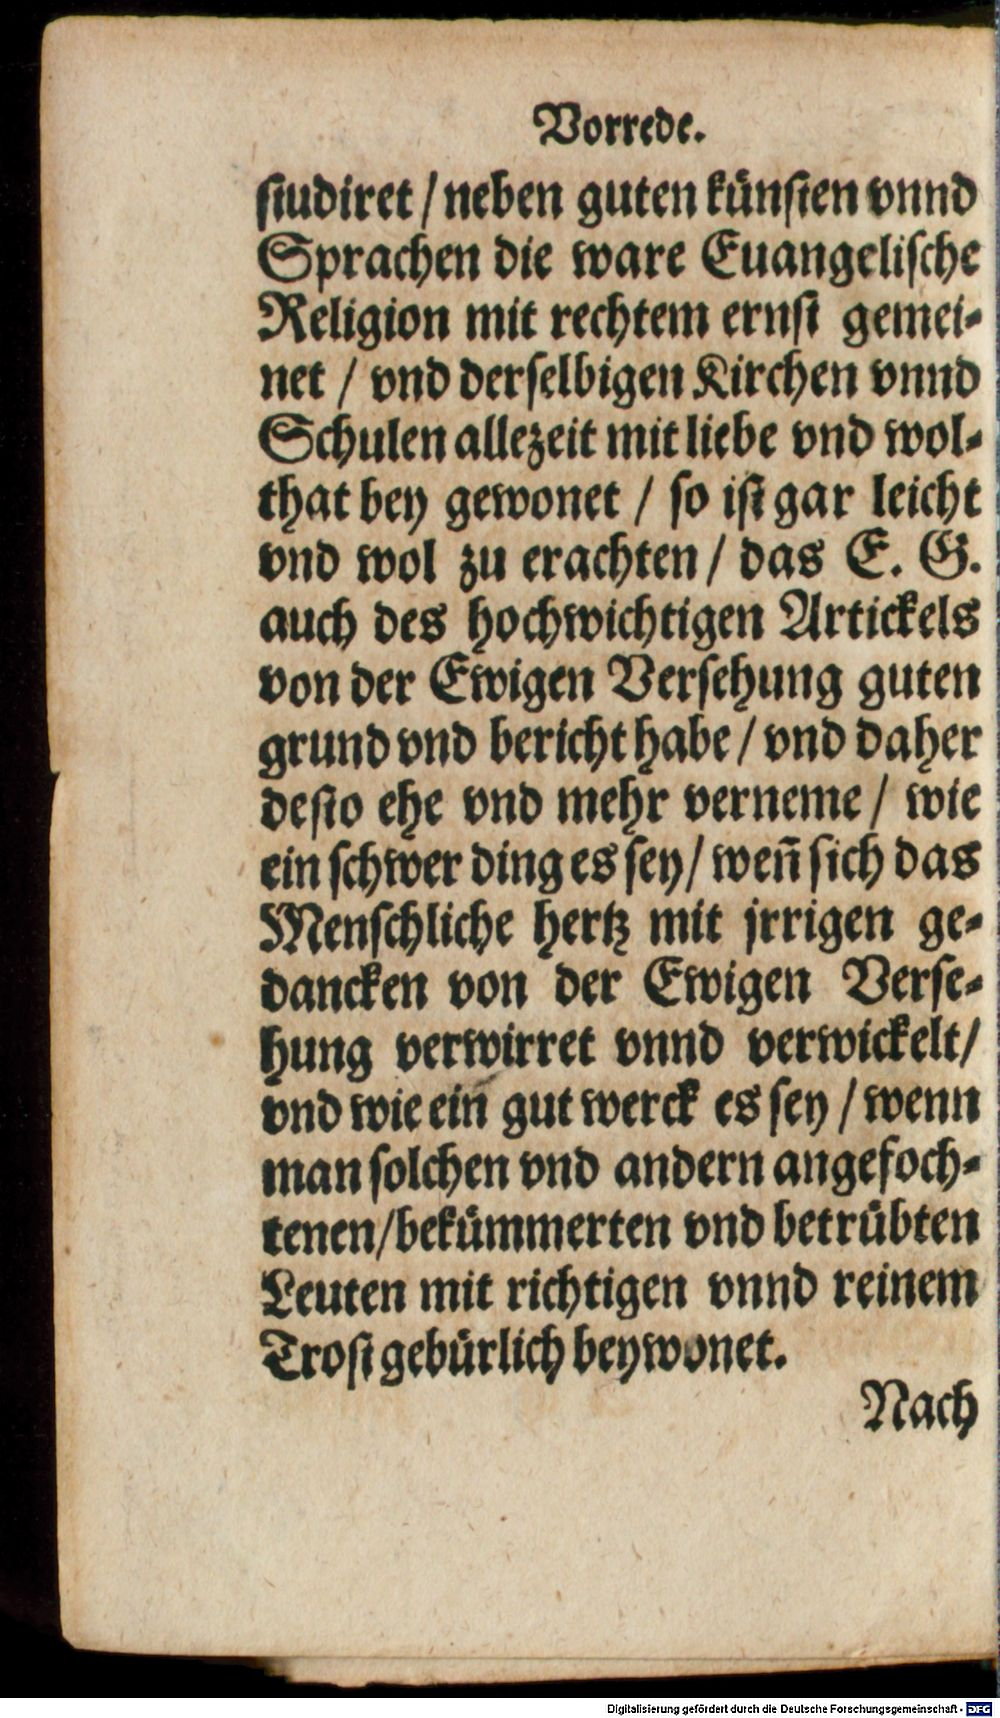 Vorrede.
ſtudiret / neben guten künſten vnnd
Sprachen die ware Euangeliſche
Religion mit rechtem ernſt gemei-
net / vnd derſelbigen Kirchen vnnd
Schulen allezeit mit liebe vnd wol-
that bey gewonet / ſo iſt gar leicht
vnd wol zu erachten / das E. G.
auch des hochwichtigen Artickels
von der Ewigen Verſehung guten
grund vnd bericht habe / vnd daher
deſto ehe vnd mehr verneme / wie
ein ſchwer ding es ſey / weñ ſich das
Menſchliche hertz mit jrrigen ge-
dancken von der Ewigen Verſe-
hung verwirret vnnd verwickelt /
vnd wie ein gut werck es ſey / wenn
man ſolchen vnd andern angefoch-
tenen / bekümmerten vnd betrübten
Leuten mit richtigen vnnd reinem
Troſt gebürlich beywonet.
Nach
Digitalisierung gefördert durch die Deutsche Forschungsgemeinschaft - DFG